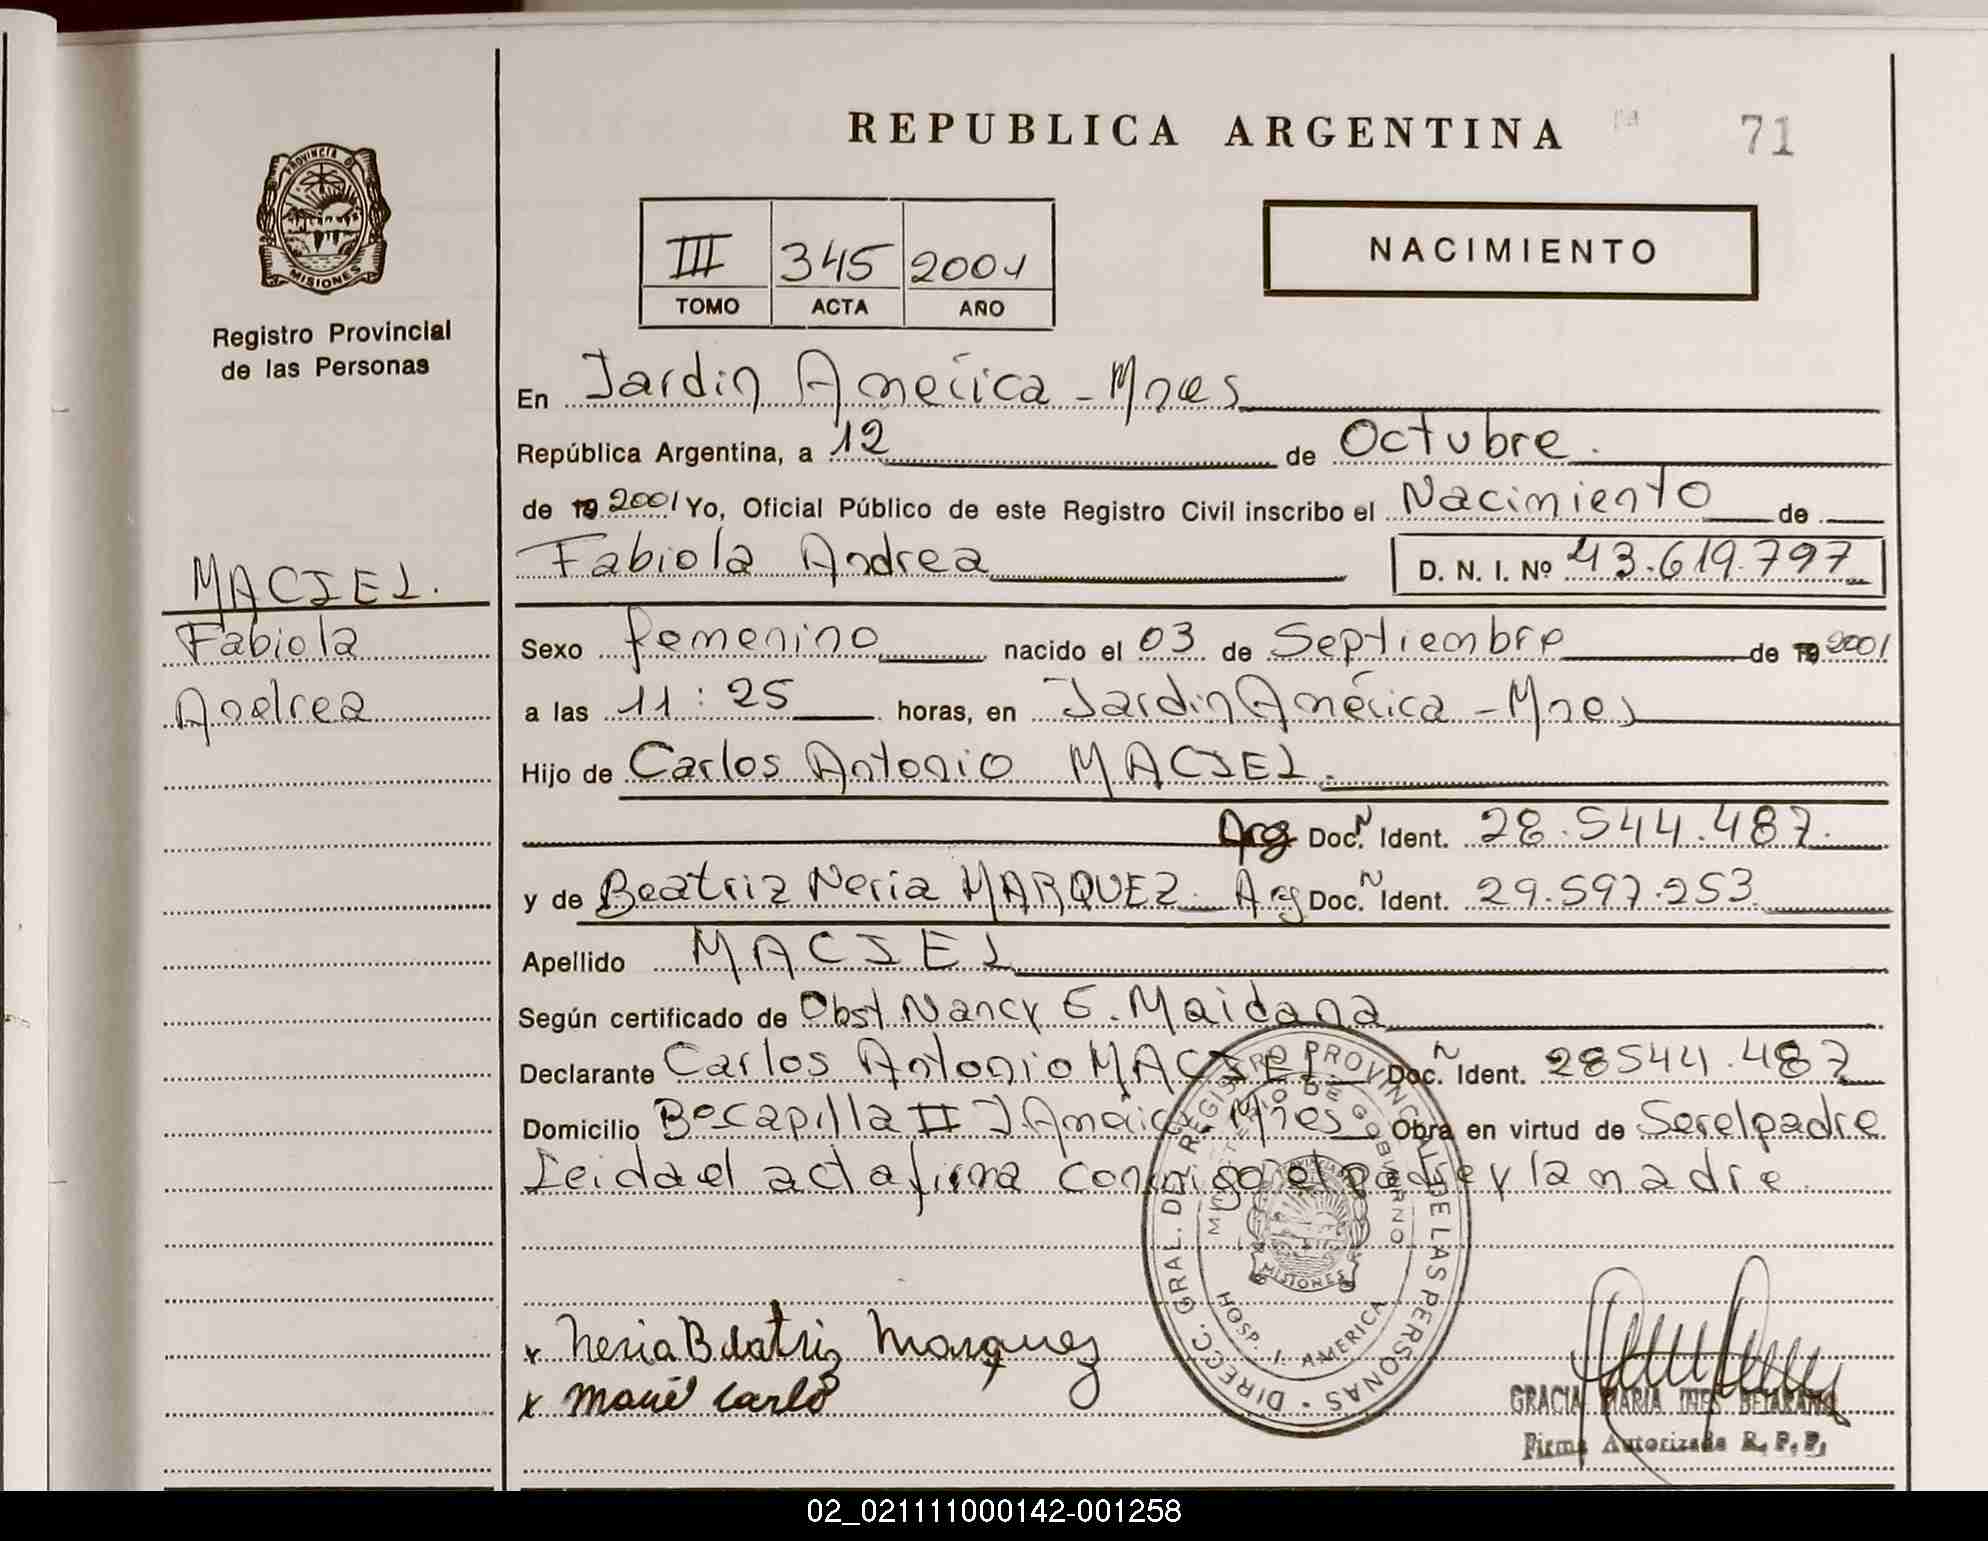 REPUBLICA ARGENTINA
71
PROVINCIA DE
MISIONES
Registro Provincial
de las Personas
III 345 2001
TOMO ACTA AÑO
NACIMIENTO
En Jardin América - Mnes
República Argentina, a 12 de Octubre.
de 19 2001 Yo, Oficial Público de este Registro Civil inscribo el Nacimiento de
Fabiola Andrea D. N. I. Nº 43.619.797
MACIEL.
Fabiola
Andrea
Sexo femenino nacido el 03 de Septiembre de 19 2001
a las 11:25 horas, en Jardin América - Mnes
Hijo de Carlos Antonio MACIEL.
Arg Doc. Ident. 28.544.487.
y de Beatriz Neria MARQUEZ. Arg Doc. Ident. 29.597.253
Apellido MACIEL
Según certificado de Obst Nancy E. Maidana
Declarante Carlos Antonio MACIEL Doc. Ident. 28544.487
Domicilio Bº Capilla II J América - Mnes Obra en virtud de Ser el padre
Leida el acta firma conmigo el padre y la madre
DIRECC. GRAL. DEL REGISTRO PROVINCIAL DE LAS PERSONAS
MINISTERIO DE GOBIERNO
MISIONES
HOSP. J. AMERICA
x Neria Beatriz Marquez
x Carlo
GRACIA MARIA INES
Firma Autorizada R. P. P.
02_021111000142-001258